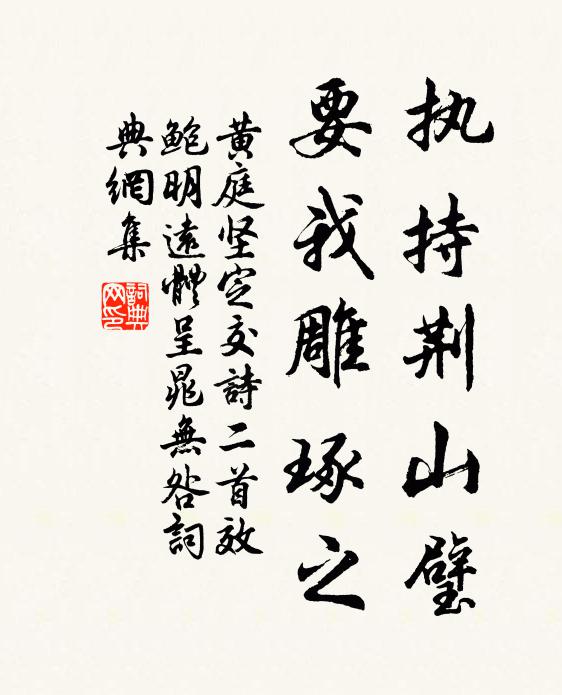 执持荆山璧
要我雕琢之
黄庭坚定交詩二首效
鲍明遠體呈晁無咎詞
典網集
詞典网印